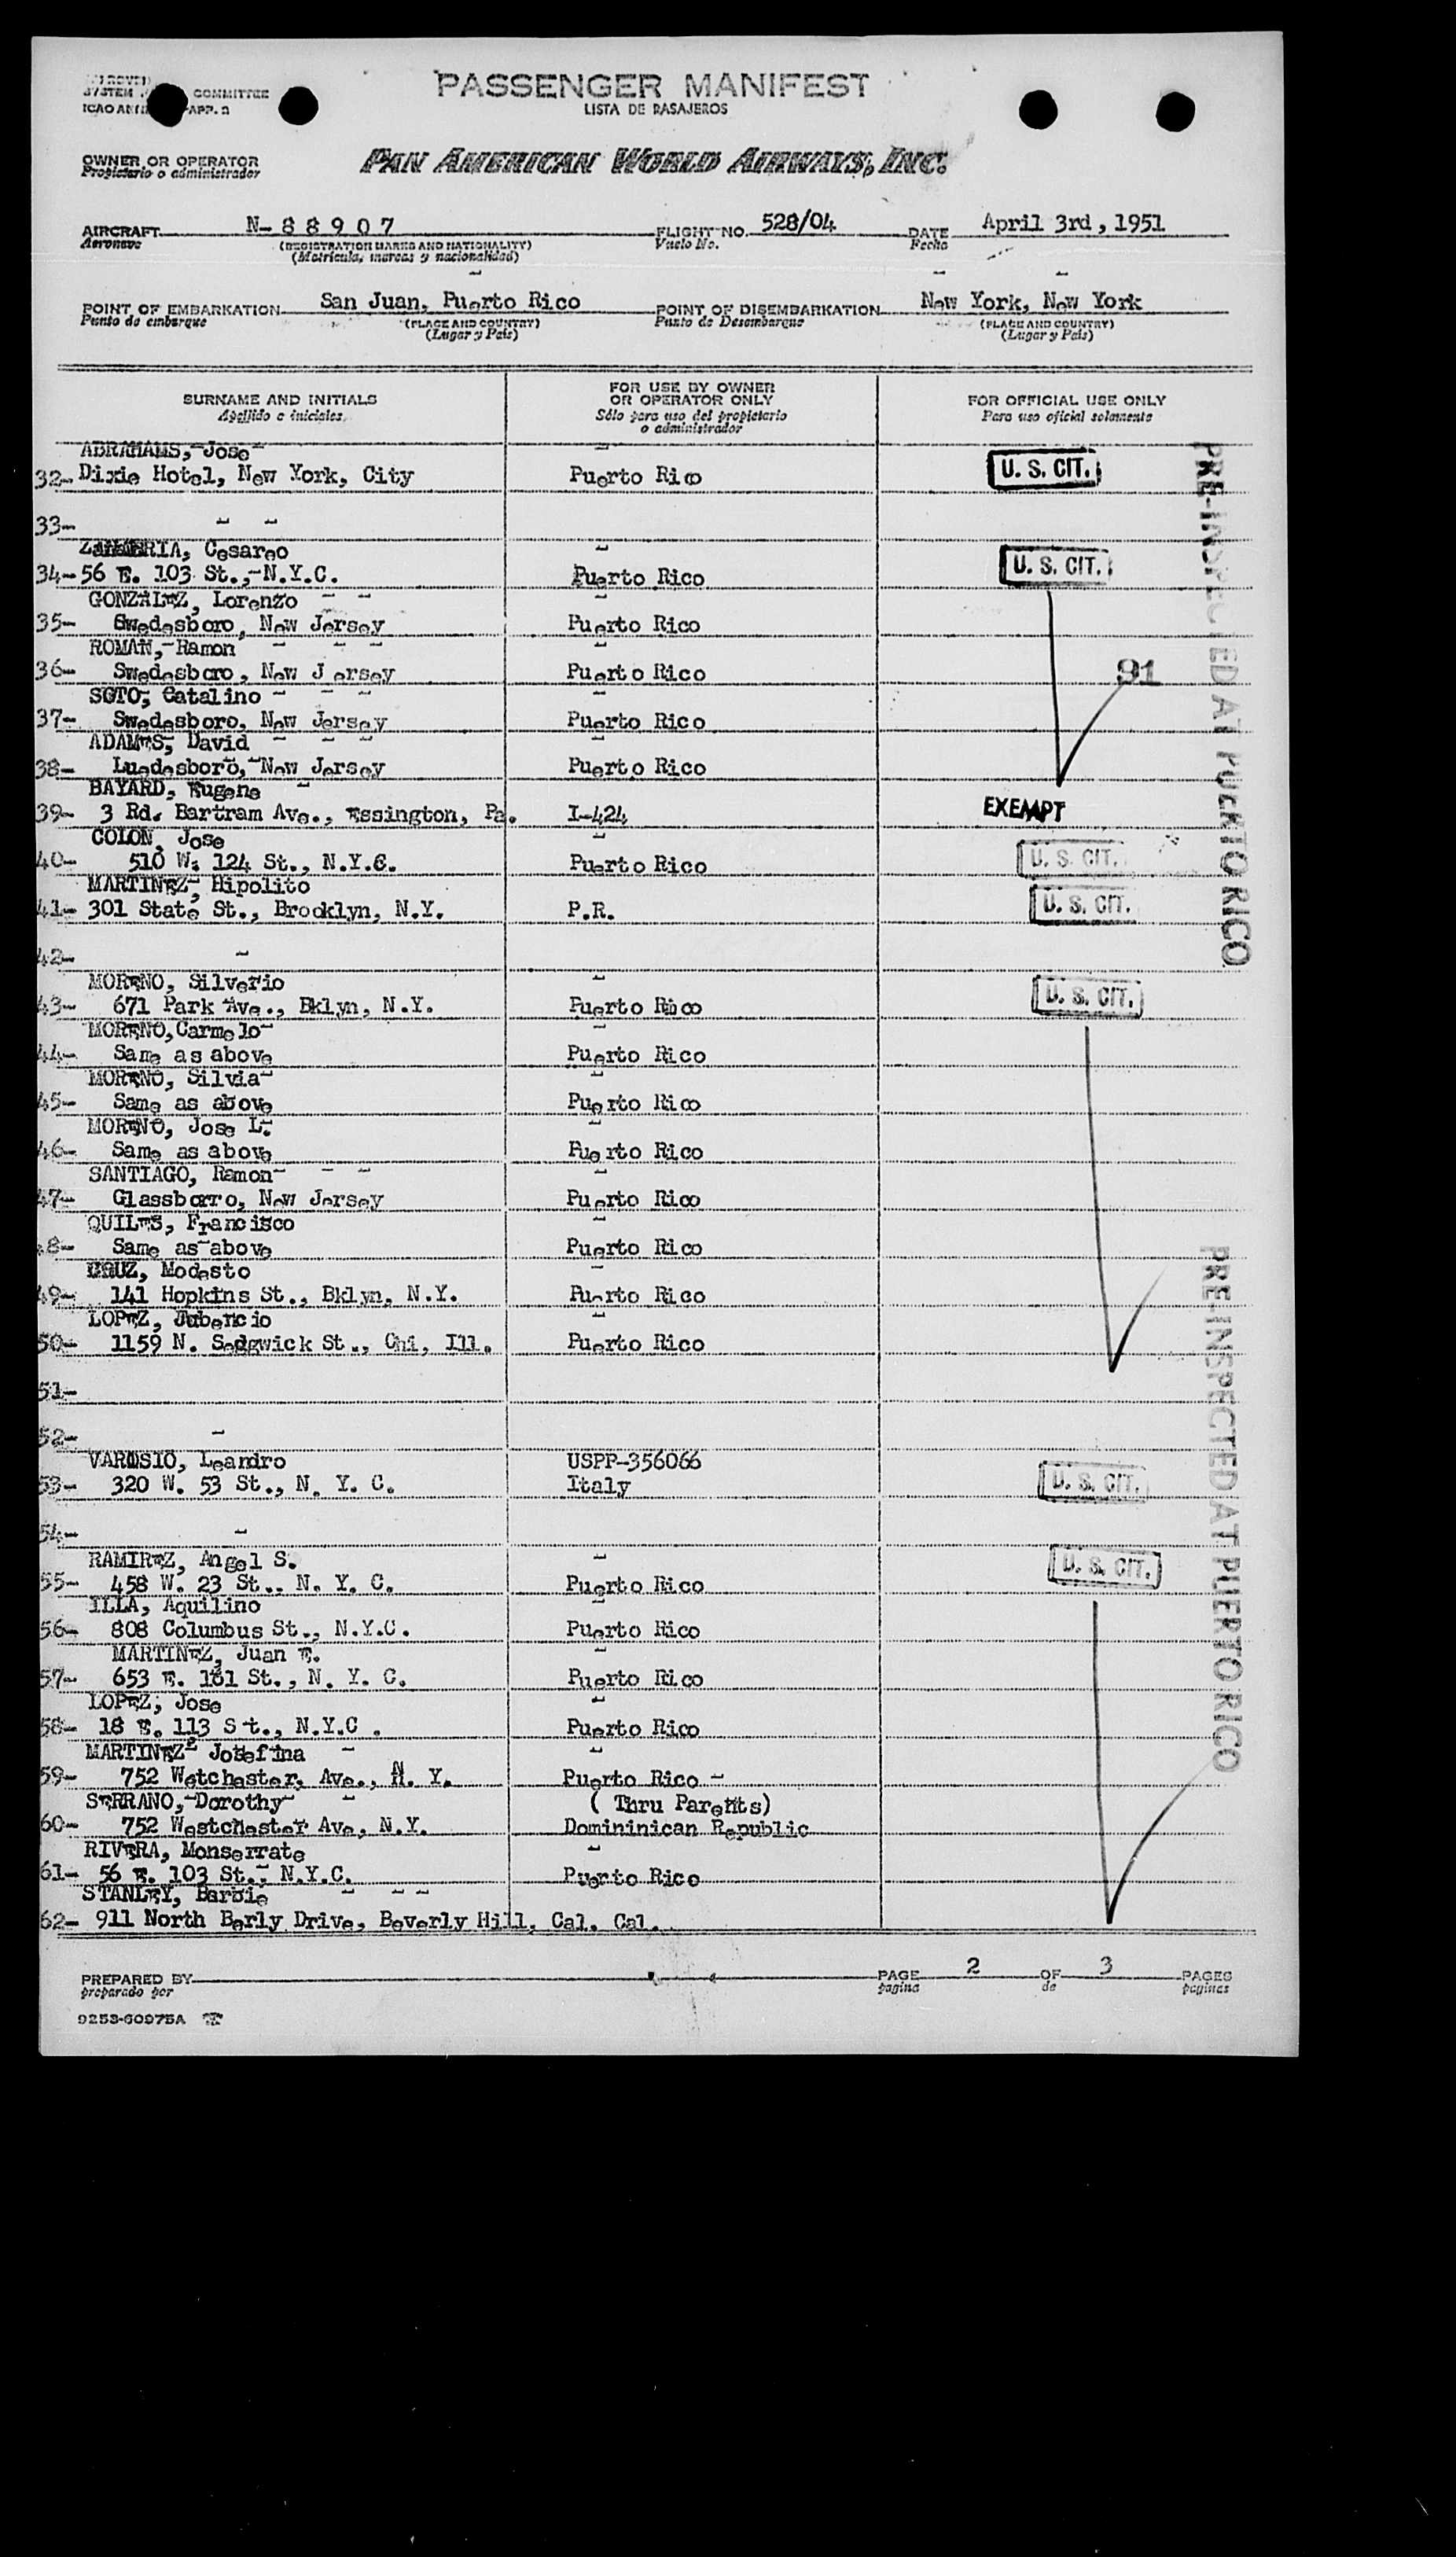 SYSTEM COMMITTEE
ICAO APP. 2
PASSENGER MANIFEST
LISTA DE PASAJEROS
OWNER OR OPERATOR
Propietario o administrador
PAN AMERICAN WORLD AIRWAYS, INC.
AIRCRAFT N-88907 FLIGHT NO. 528/04 DATE April 3rd, 1951
Aeronave (REGISTRATION MARKS AND NATIONALITY) Vuelo No. Fecha
(Matrícula, marcas y nacionalidad)
POINT OF EMBARKATION San Juan, Puerto Rico POINT OF DISEMBARKATION New York, New York
Punto de embarque (PLACE AND COUNTRY) Punto de Desembarque (PLACE AND COUNTRY)
(Lugar y País) (Lugar y País)
SURNAME AND INITIALS FOR USE BY OWNER OR OPERATOR ONLY FOR OFFICIAL USE ONLY
Apellido e iniciales Sólo para uso del propietario o administrador Para uso oficial solamente
ABRAHAMS, Jose
32- Dixie Hotel, New York, City Puerto Rico U. S. CIT.
33-
Cesareo
34- 56 E. 103 St., N.Y.C. Puerto Rico U. S. CIT.
GONZALEZ, Lorenzo
35- Swedesboro, New Jersey Puerto Rico
ROMAN, Ramon
36- Swedesboro, New Jersey Puerto Rico 91
SOTO, Catalino
37- Swedesboro, New Jersey Puerto Rico
ADAMES, David
38- Luedesboro, New Jersey Puerto Rico
BAYARD, Eugene
39- 3 Rd. Bartram Ave., Essington, Pa. I-424 EXEMPT
COLON, Jose
40- 510 W. 124 St., N.Y.C. Puerto Rico U. S. CIT.
MARTINEZ, Hipolito
41- 301 State St., Brooklyn, N.Y. P.R. U. S. CIT.
42-
MORENO, Silverio
43- 671 Park Ave., Bklyn, N.Y. Puerto Rico U. S. CIT.
MORENO, Carmelo
44- Same as above Puerto Rico
MORENO, Silvia
45- Same as above Puerto Rico
MORENO, Jose L.
46- Same as above Puerto Rico
SANTIAGO, Ramon
47- Glassborro, New Jersey Puerto Rico
QUILES, Francisco
48- Same as above Puerto Rico
CRUZ, Modesto
49- 141 Hopkins St., Bklyn, N.Y. Puerto Rico
LOPEZ, Jubencio
50- 1159 N. Sedgwick St., Chi, Ill. Puerto Rico
51-
52-
VAROSIO, Leandro USPP-356066
53- 320 W. 53 St., N. Y. C. Italy U. S. CIT.
54-
RAMIREZ, Angel S.
55- 458 W. 23 St., N. Y. C. Puerto Rico U. S. CIT.
ILLA, Aquilino
56- 808 Columbus St., N.Y.C. Puerto Rico
MARTINEZ, Juan E.
57- 653 E. 161 St., N. Y. C. Puerto Rico
LOPEZ, Jose
58- 18 E. 113 St., N.Y.C. Puerto Rico
MARTINEZ, Josefina
59- 752 Wetchester, Ave., N. Y. Puerto Rico -
SERRANO, Dorothy ( Thru Parents)
60- 752 Westchester Ave, N.Y. Domininican Republic
RIVERA, Monserrate
61- 56 E. 103 St., N.Y.C. Puerto Rico
STANLEY, Barbie
62- 911 North Berly Drive, Beverly Hill, Cal. Cal.
PRE-INSPECTED AT PUERTO RICO
PRE-INSPECTED AT PUERTO RICO
PREPARED BY PAGE 2 OF 3 PAGES
preparado por pagina de paginas
9253-60975A